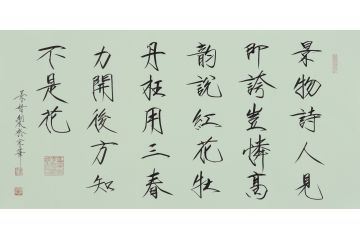 景物詩人見
即誇豈憐高
韻說紅花牡
丹枉用三春
力開後方知
不是花